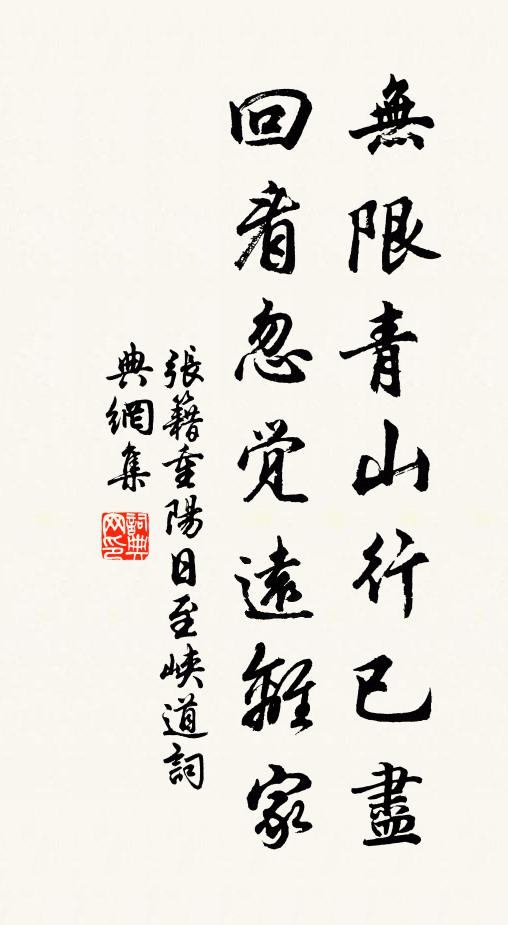 無限青山行已盡
回看忽觉遠離家
張籍重陽日至峽道詞
典網集
詞典网印